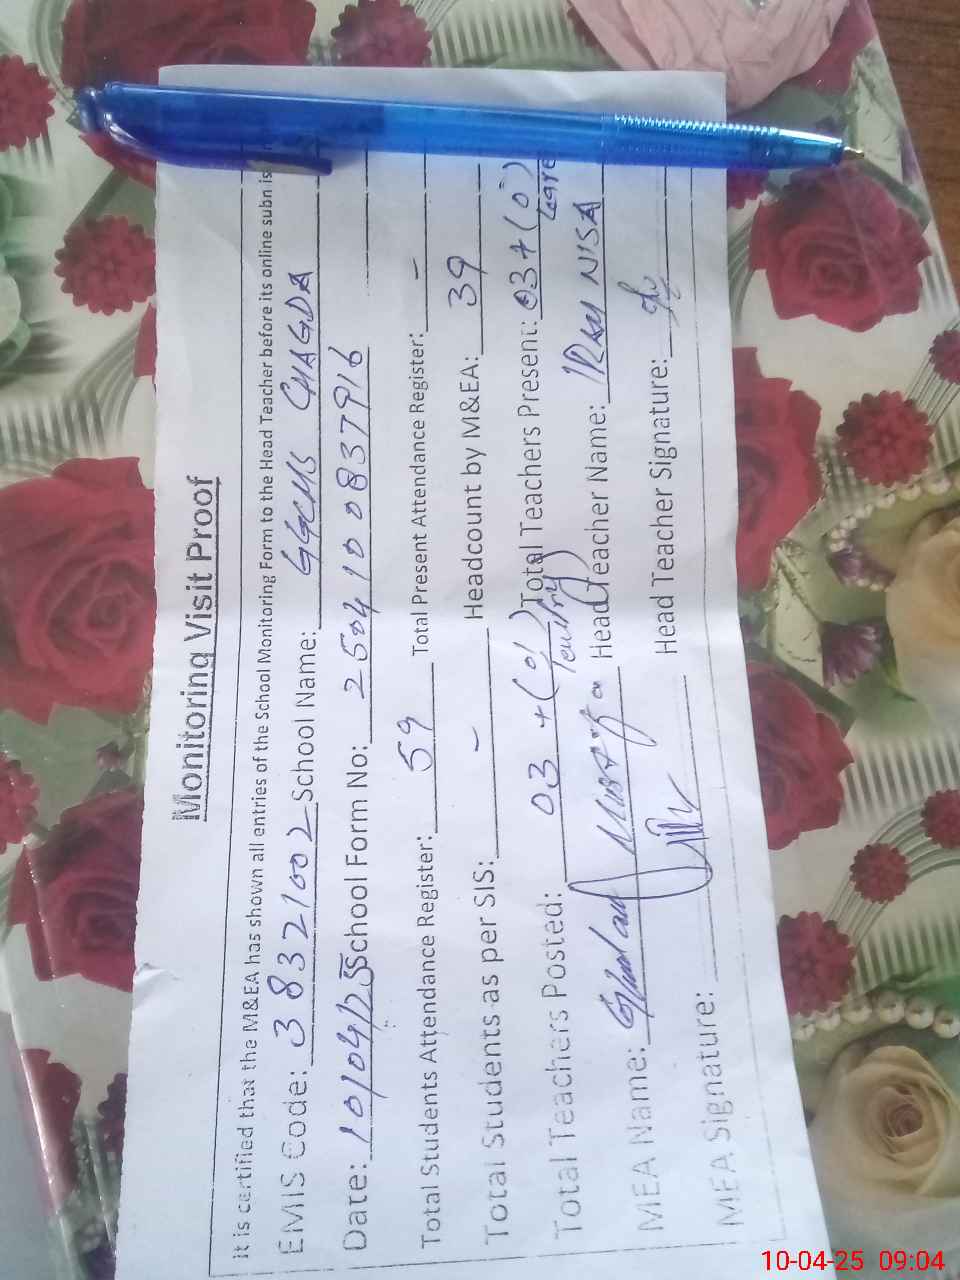 Monitoring Visit Proof
It is certified that the M&EA has shown all entries of the School Monitoring Form to the Head Teacher before its online subn is
EMIS Code: 38321002 School Name: GGCMS CHAGDA
Date: 10/04/25 School Form No: 2504100837916
Total Students Attendance Register: 59 Total Present Attendance Register: -
Total Students as per SIS: - Headcount by M&EA: 39
Total Teachers Posted: 03 + (01) Total Teachers Present: 03 + (0)
leave
MEA Name: Mustafa Head Teacher Name: NISA
MEA Signature: Head Teacher Signature:
10-04-25 09:04